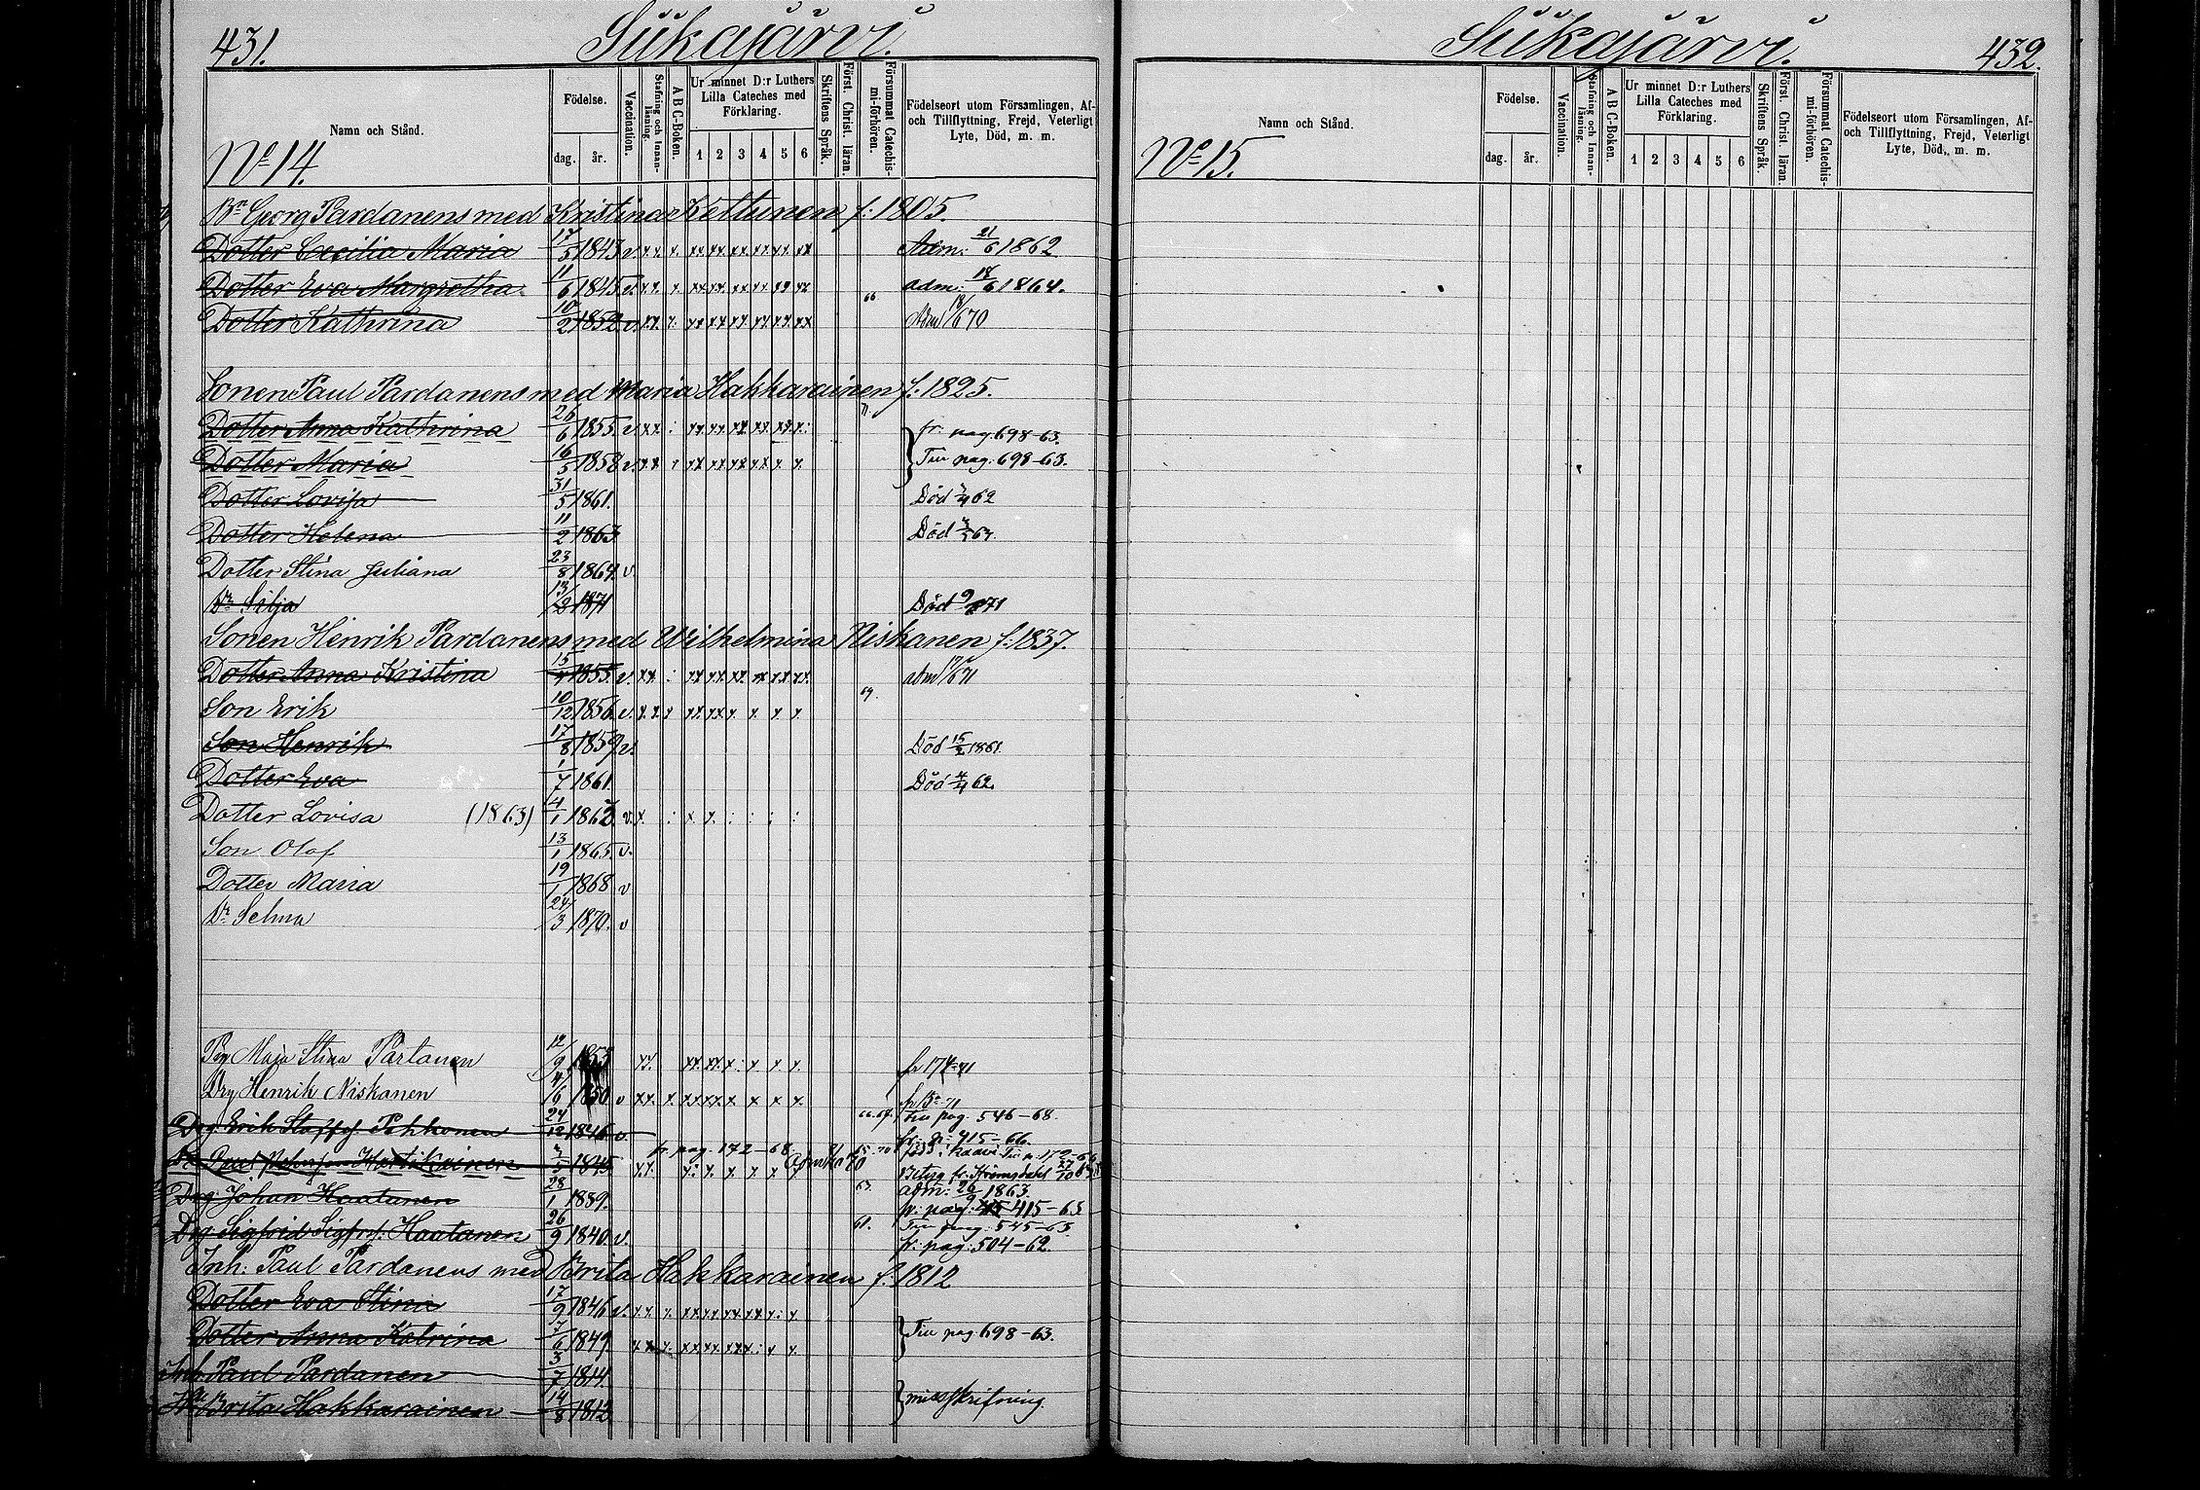 431.
Siikajärvi.
Namn och Stånd.
Födelse.
dag.
år.
Vaccination.
Stafning och Innanläsning.
A B C-Boken.
Ur minnet D:r Luthers Lilla Cateches med Förklaring.
1 2 3 4 5 6
Skriftens Språk.
Först. Christ. läran.
Försummat Catechismi-förhören.
Födelseort utom Församlingen, Af- och Tillflyttning, Frejd, Veterligt Lyte, Död, m. m.
No 14.
Bn Georg Pardanens med Kristina Kettunen f: 1805.
Dotter Cæcilia Maria 17/5 1843 v. Adm: 21/6 1862
Dotter Eva Margretha 11/6 1845 v. adm: 18/6 1864.
Dotter Kathrina 10/2 1852 v. Adm 18/6 70
Sonen Paul Pardanens med Maria Hakkarainen f: 1825.
Dotter Anna Kathrina 26/6 1855 v. fr. pag. 698-63.
Dotter Maria 16/5 1858 v. Till pag. 698-63.
Dotter Lovisa 31/5 1861. Död 62
Dotter Helena 11/2 1863
Dotter Stina Juliana 23/8 1864 v.
Dr Silja 13/2 1871 Död 71
Sonen Henrik Pardanens med Wilhelmina Niskanen f: 1837.
Dotter Anna Kristina 15/4 1855 v. adm 71
Son Erik 10/12 1856 v. 69.
Son Henrik 17/8 1859 v. Död 15/2 1861.
Dotter Eva 1/7 1861. Död 62.
Dotter Lovisa (1863) 14/1 1863 v.
Son Olof 13/1 1865 v.
Dotter Maria 19/1 1868 v
Dr Selma 24/3 1870. v
Pig Maja Stina Partanen 12/9 1853 fr 174-71
Drg Henrik Niskanen 4/6 1850 v
Drg Erik Staffs. Pakkonen 24/12 1846 v. Till pag. 546-68
fr: p: 415-66.
Hartikainen 1845 fr. pag. 172-68
Betyg fr. Strömsdahl
Drg Johan Haatanen 28/1 1839. 63 adm: 26/9 1863.
fr: pag: 415-63
Drg Sigfrid Sigfrs: Haatanen 26/9 1840 v. 61. Till pag: 545-63
fr: pag: 504-62.
Inh: Paul Pardanens med Brita Hakkarainen f. 1812
Dotter Eva Stina 17/9 1846 v.
Dotter Anna Katrina 7/6 1849 Till pag 698-63.
Inh Paul Pardanen 3/7 1814.
Hu Brita Hakkarainen 14/8 1812 misskrifning.
Siikajärvi.
432.
Namn och Stånd.
Födelse.
dag.
år.
Vaccination.
Stafning och Innanläsning.
A B C-Boken.
Ur minnet D:r Luthers Lilla Cateches med Förklaring.
1 2 3 4 5 6
Skriftens Språk.
Först. Christ. läran.
Försummat Catechismi-förhören.
Födelseort utom Församlingen, Af- och Tillflyttning, Frejd, Veterligt Lyte, Död, m. m.
No 15.